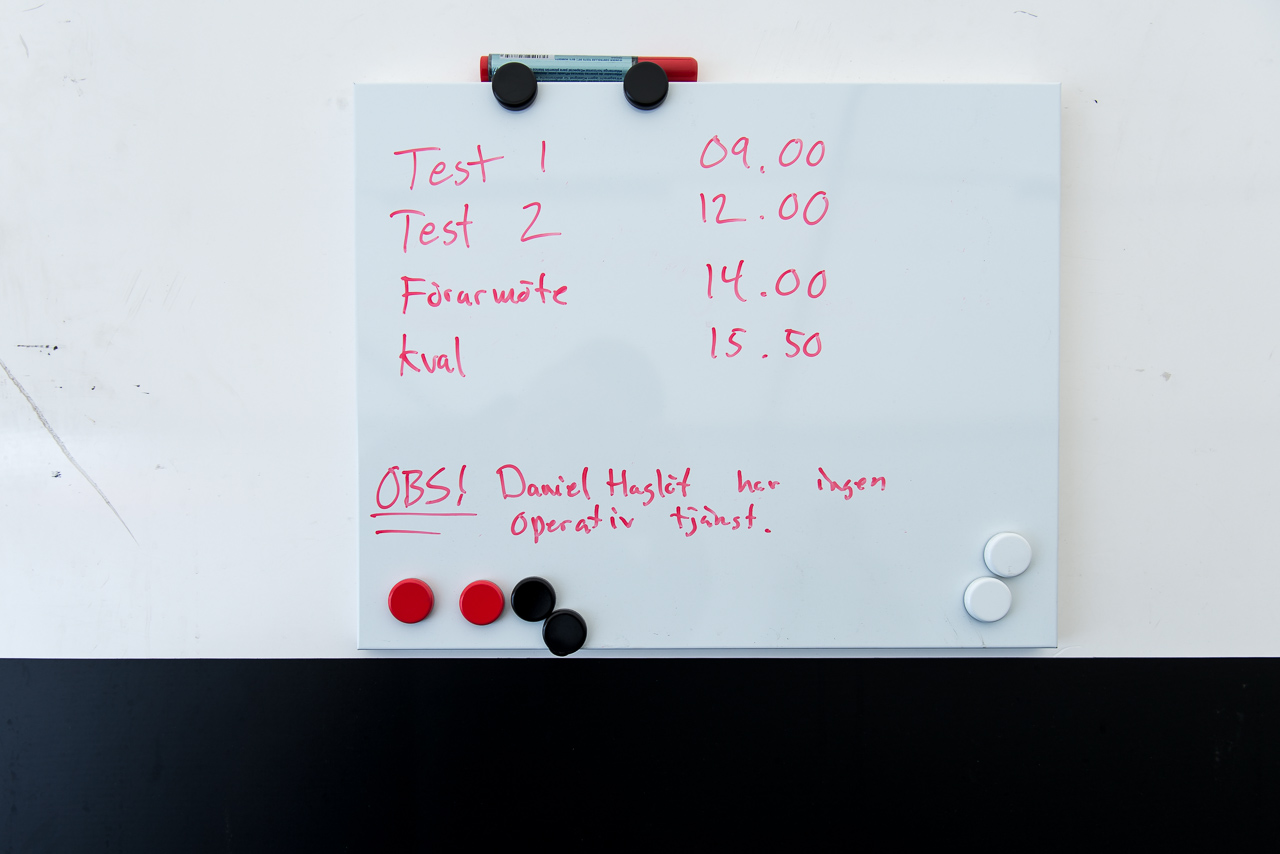 Test 1 09.00
Test 2 12.00
Förarmöte 14.00
kval 15.50
OBS! Daniel Haglöf har ingen
operativ tjänst.